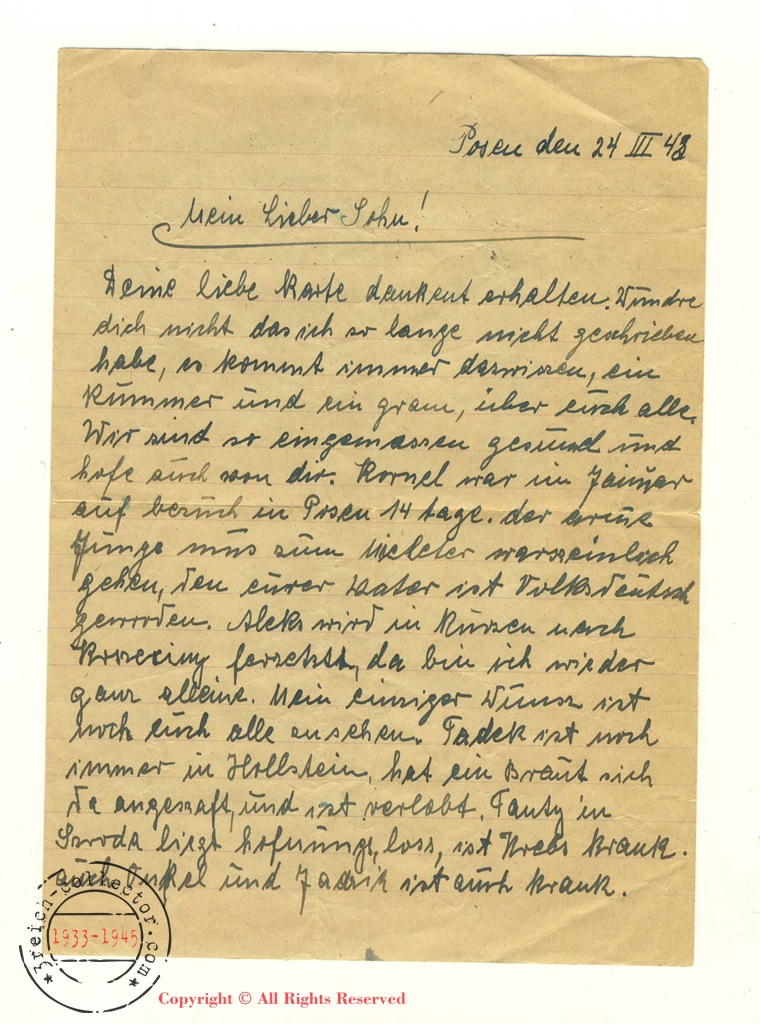 Posen den 24 III 43
Mein Lieber Sohn!
Deine liebe Karte dankent erhalten. Wundre
dich nicht das ich so lange nicht geschrieben
habe, es kommt immer daswissen, ein
Kummer und ein gram, über euch alle.
Wir sind so eingemassen gesund und
hofe auch von dir. Kornel war im Januar
auf besuch in Posen 14 tage. der arme
Junge mus zum warszeinlich
gehen, den eurer Vater ist Volksdeutsch
geworden. Aleks wird in Kurzen nach
fersetzt, da bin ich wieder
ganz alleine. Mein einziger Wunsz ist
noch euch alle zu sehen. Tadek ist noch
immer in Hollstein, hat ein Braut sich
da angeszaft, und ist verlobt. in
liegt hofnungs, loss, ist Krebs Krank.
auch Onkel und ist auch Krank.
3reich-collector.com
1933-1945
Copyright © All Rights Reserved